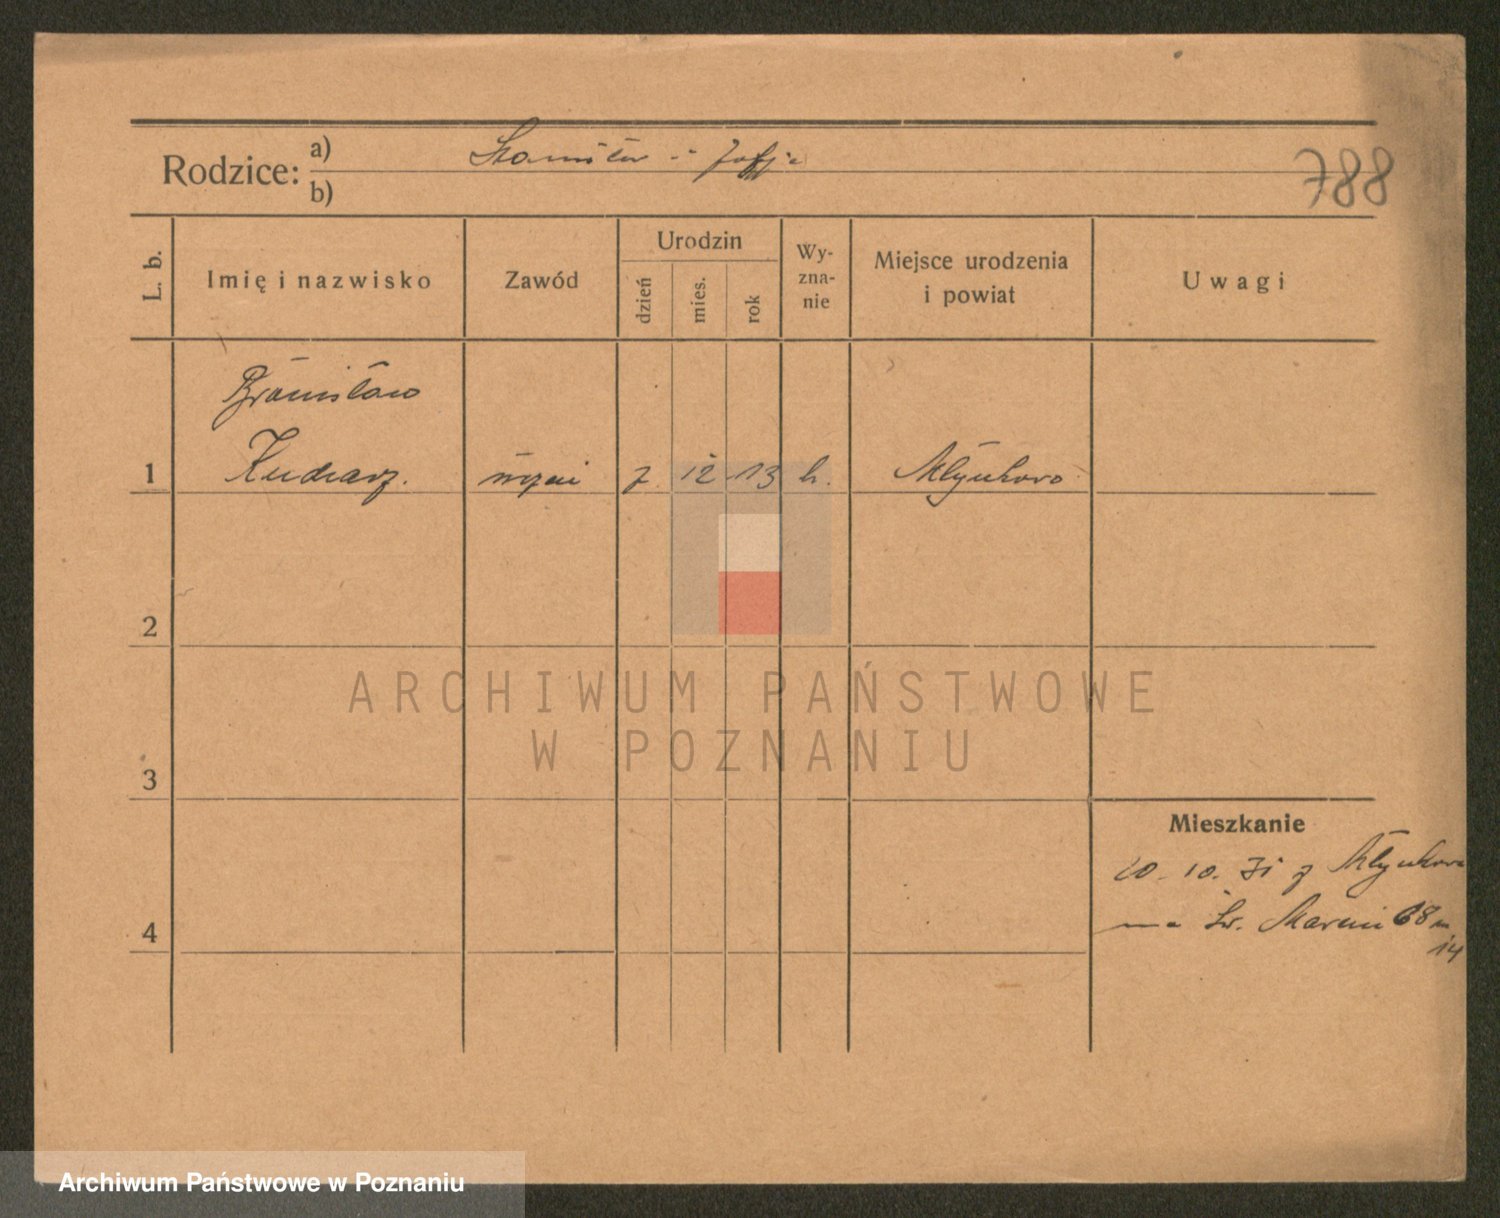 Rodzice: a) Stanisław i Zofja
b)
788
L. b.
Imię i nazwisko
Zawód
Urodzin
dzień
mies.
rok
Wy-
zna-
nie
Miejsce urodzenia
i powiat
Uwagi
Bronisław
1 Kucharz. 7 12 13 k. Młynkowo
2
3
4
Mieszkanie
20. 10. 31 z Młynkowa
na Św. Marcin 68 m
14
ARCHIWUM PAŃSTWOWE
W POZNANIU
Archiwum Państwowe w Poznaniu